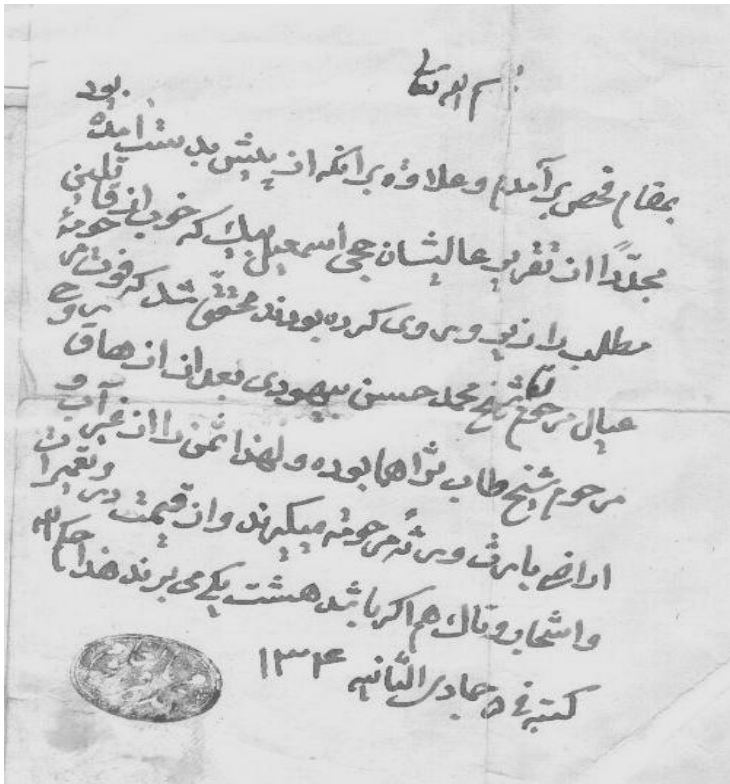 بسم الله تعالی
بمقام فحص برآمدم و علاوه بر آنکه از پیش بدست آمده بود
مجدّداً از تقریر عالیشان حجی اسمعیل بیک که خوب از قاینی
مطلب را از پی و بروی کرده بودند محقّق شد که فوت مرحومهٔ
عیال مرحوم شیخ محمد حسن بعد از ازهاق روح
مرحوم شیخ طاب ثراهما بوده و لهذا ثمن را از غیر آب و
اراضی بارث ورثهٔ مرحومه میگیرند و از قیمت در و تعمیرات
و اشجار و تاک هم اگر باشد هشت یکی میبرند هذا حکم الله
کتبه فی ۵ جمادی الثانیه ۱۳۳۴